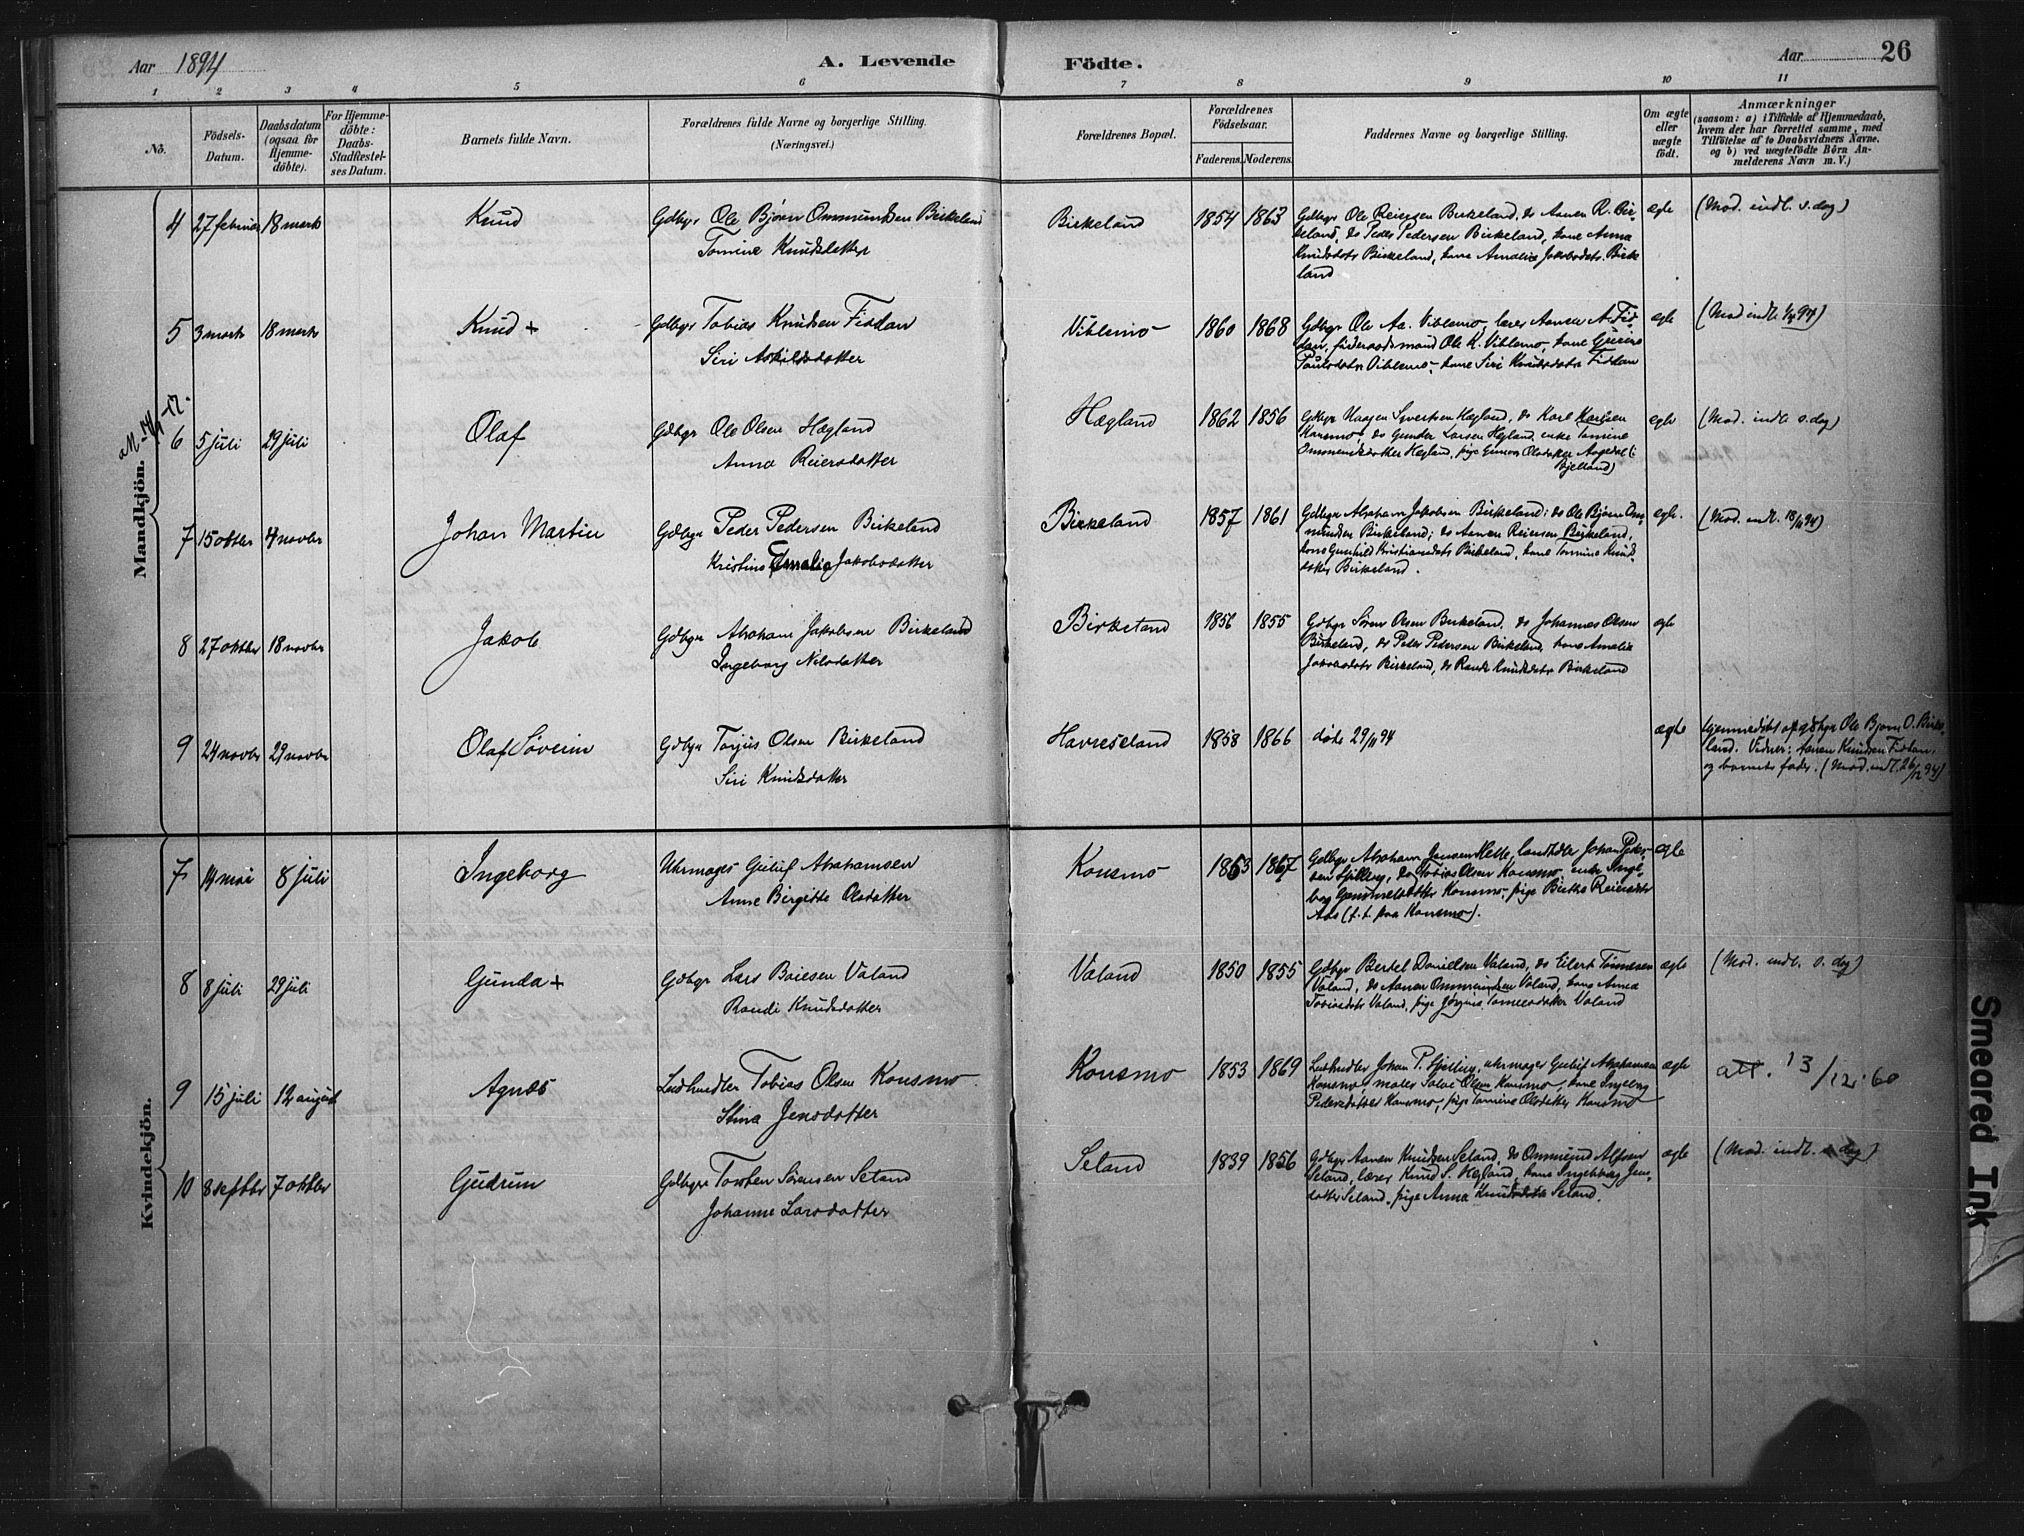 Aar 1894
A. Levende Födte.
Aar 26
1 2 3 4 5 6 7 8 9 10 11
No.
Födsels-Datum.
Daabsdatum (ogsaa for Hjemme-döbte).
For Hjemme-döbte: Daabs-Stadfæstel-ses Datum.
Barnets fulde Navn.
Forældrenes fulde Navne og borgerlige Stilling. (Næringsvei.)
Forældrenes Bopæl.
Forældrenes Födselsaar.
Faderens. Moderens.
Faddernes Navne og borgerlige Stilling.
Om ægte eller uægte födt.
Anmærkninger
(saasom: a) i Tilfælde af Hjemmedaab, hvem der har forrettet samme, med Tilföielse af to Daabsvidners Navne, og b) ved uægtefödte Börn Anmelderens Navn m. V.)
Mandkjön.
4 27 februar 18 marts Knud Gdbgr Ole Björn Ommundsen Birkeland
Tomine Knudsdatter
Birkeland 1854 1863 Gdbgr Ole Reiersen Birkeland, do Aanen R. Bir-
keland, do Peder Pedersen Birkeland, kone Anna
Knudsdatr Birkeland, kone Amalia Jakobsdatr. Birke
land
ægte (Mod. indl. s. dag)
5 3 marts 18 marts Knud + Gdbgr Tobias Knudsen Fiddan
Siri Askildsdatter
Viblemo 1860 1868 Gdbgr Ole Aa. Viblemo, lærer Aanen A. Fid-
dan, föderaadsmand Ole K. Viblemo, kone
Paulsdatr Viblemo, kone Siri Knudsdatr Fiddan
ægte
6 5 juli 29 juli Olaf Gdbgr Ole Olsen Hægland
Anna Reiersdatter
Hægland 1862 1856 Gdbgr Haagen Syvertsen Hægland, do Karl Karlsen
Konsmo, do Gunder Larsen Hegland, enke Tomine
Ommundsdatter Hegland, pige Gunvor Olsdatter
Bjelland)
ægte (Mod. indl. s. dag)
7 15 oktbr 4 novbr Johan Martin Gdbgr Peder Pedersen Birkeland
Kristine Amalia Jakobsdatter
Birkeland 1857 1861 Gdbgr Abraham Jakobsen Birkeland; do Ole Bjørn Om-
mundsen Birkeland; do Aanen Reiersen Birkeland,
kone Gunhild Kristiansdatr Birkeland, kone Tomine Knuds
datter Birkeland.
ægte. (Mod. indl. 18/11 94)
8 27 oktbr 18 novbr Jakob Gdbgr Abraham Jakobsen Birkeland
Ingeborg Nilsdatter
Birkeland 1856 1855 Gdbgr Sören Olsen Birkeland, do Johannes Olsen
Birkeland, do Peder Pedersen Birkeland, kone Amalia
Jakobsdatr Birkeland, do Randi Knudsdatr Birkeland
ægte
9 24 novbr 29 novbr Olaf Søveim Gdbgr Torjus Olsen Birkeland
Siri Knudsdatter
Havreseland 1858 1866 døde 29/11 94 ægte
hjemmedöbt af gdbgr Ole Bjørn O. Birke-
land. Vidner: Aanen Knudsen Fiddan,
og barnets fader. (Mod. indl. 26/12 94)
Kvindekjön.
7 14 mai 8 juli Ingeborg Uhrmager Abrahamsen
Anne Birgitte Olsdatter
Konsmo 1863 1867 Gdbgr Abraham Jensen Helle, landhdlr Johan Peder-
sen Spilling, do Tobias Olsen Konsmo, enke Inge-
borg Gammelsdatter Konsmo, pige Birthe Reiersdatr
Aas (f. t. paa Konsmo).
ægte
8 8 juli 29 juli Gunda + Gdbgr Lars Baiesen Valand
Randi Knudsdatter
Valand 1850 1855 Gdbgr Bertel Danielsen Valand, do Eilert Tönnesen
Valand, do Aanen Ommundsen Valand, kone Anna
Tobiasdatr Valand, pige Jørgine Valand
ægte (Mod. indl. s. dag)
9 15 juli 12 august Agnes Landhandler Tobias Olsen Konsmo
Stina Jensdatter
Konsmo 1853 1869 Landhandler Johan P. Spilling, uhrmager Abrahamsen
Konsmo, maler Salve Olsen Konsmo, kone Ingeborg
Pedersdatter Konsmo, pige Tomine Olsdatter Konsmo
ægte att. 13/12.60
10 8 septbr 7 oktbr Gudrun Gdbgr Torsten Sörensen Seland
Johanne Larsdatter
Seland 1839 1856 Gdbgr Aanen Knudsen Seland, do Ommund Alfsen
Seland, lærer Knud S. Hegland, kone Ingeborg Jens-
datter Seland, pige Anna Knudsdatr Seland.
ægte (Mod. indl. s. dag)
Smeared Ink